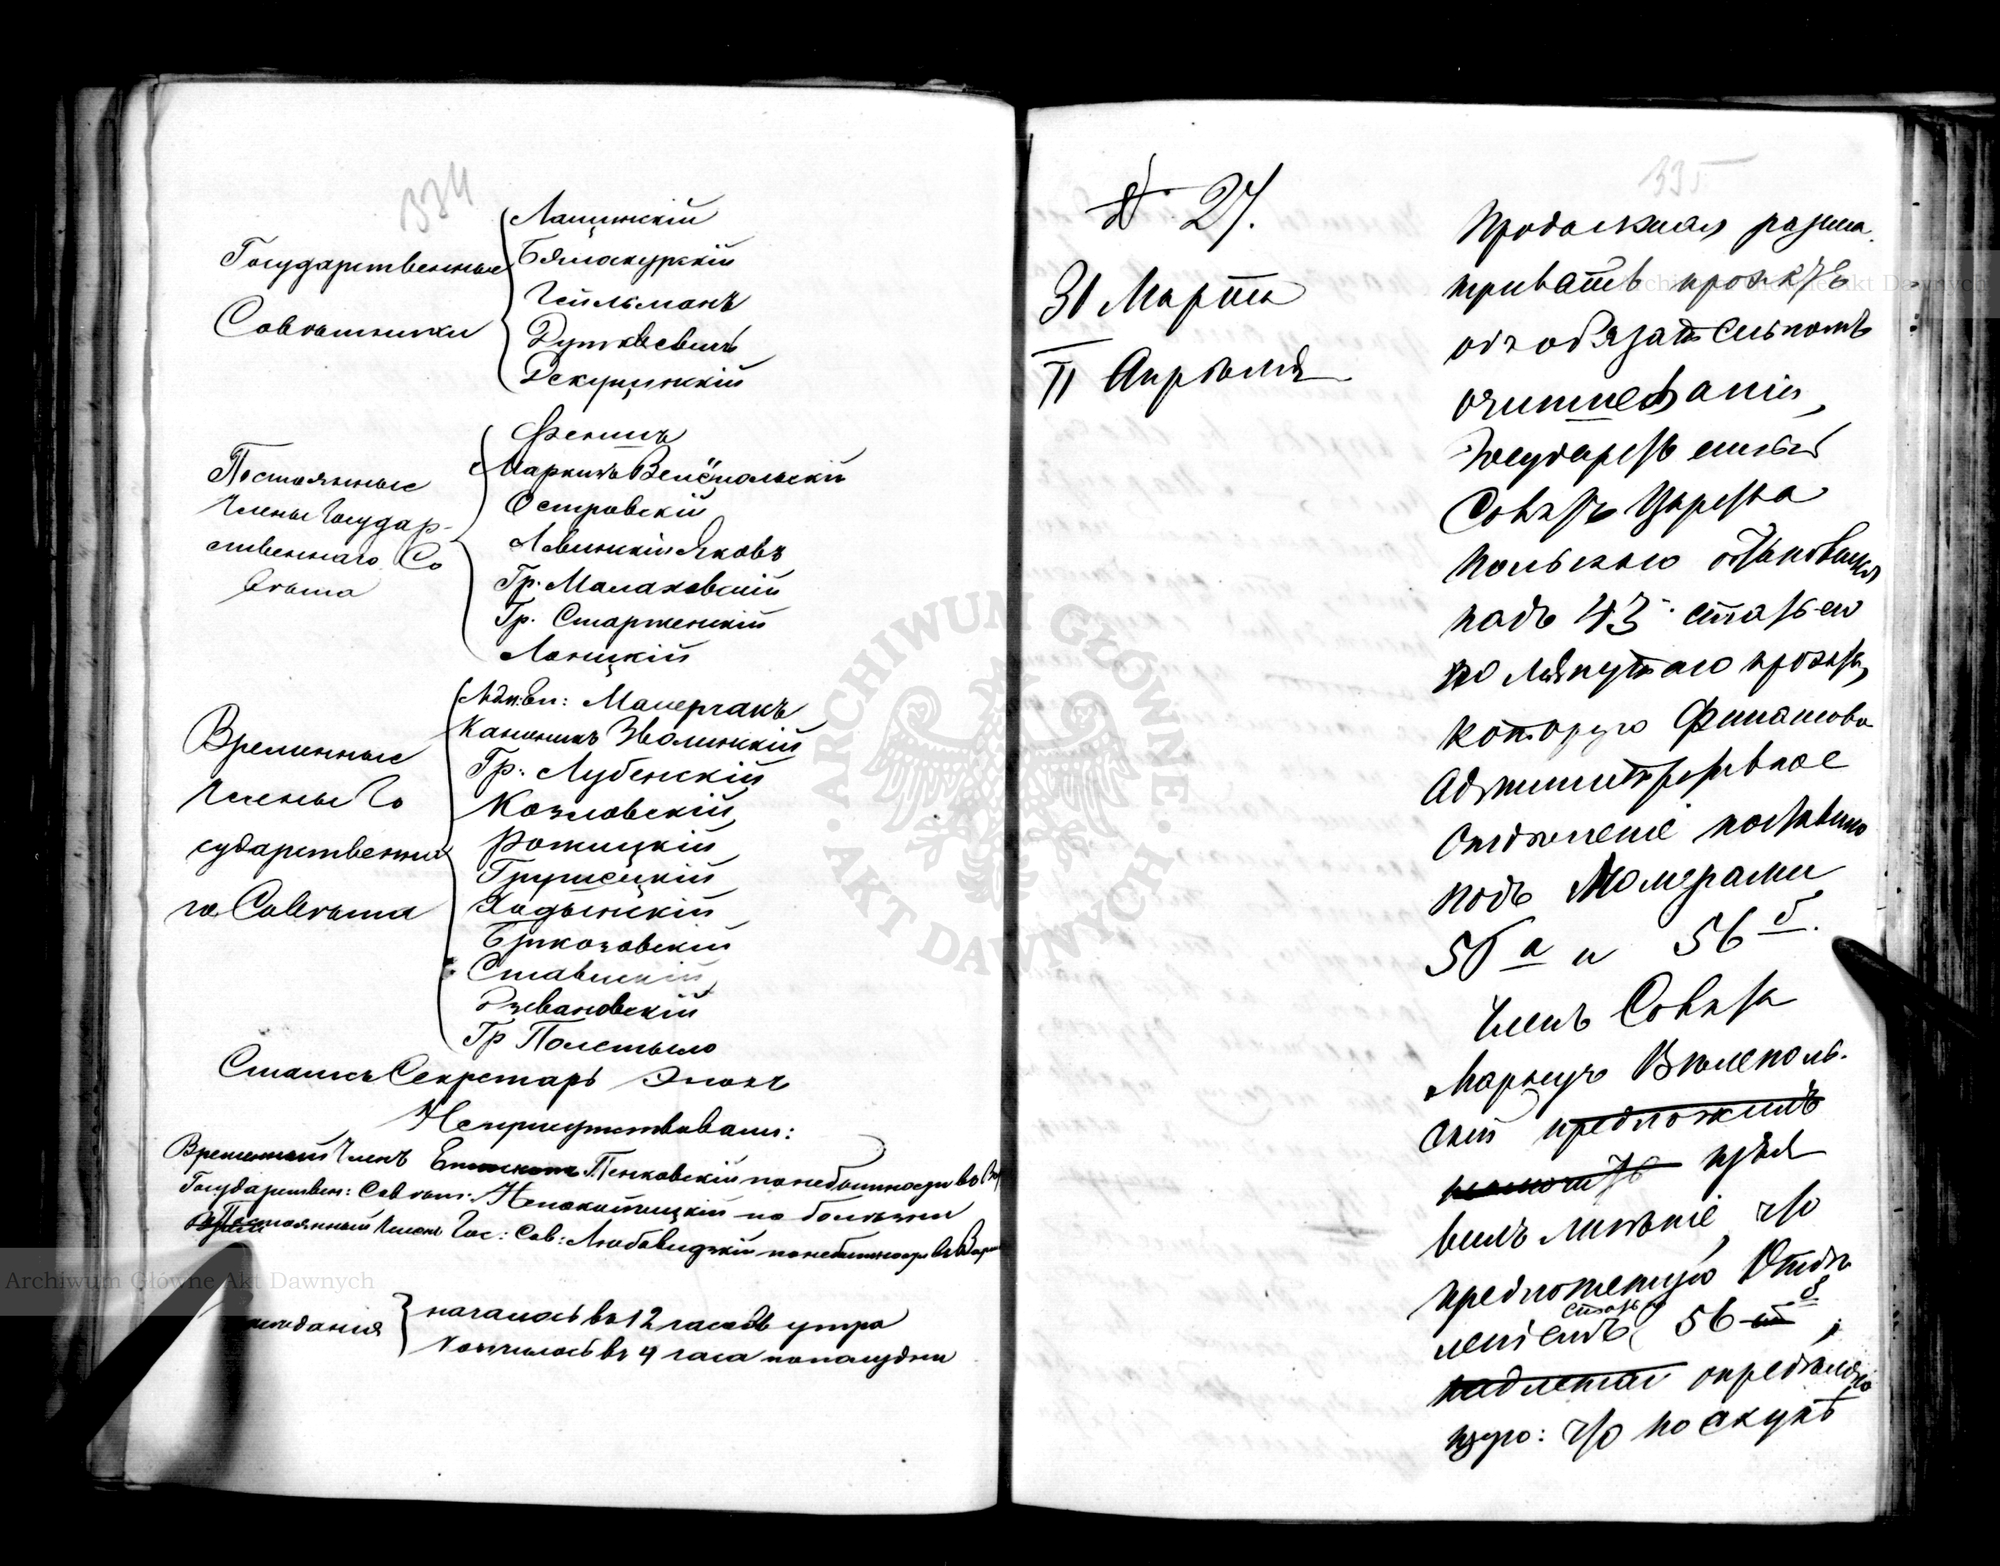 334
Государственные
Совѣтники
Лащинскій
Бялоскурскій
Гейльманъ
Дуткевичъ
Декуцинскій
Постоянные
Члены Государ-
ственнаго Со
вѣта
Феншъ
Маркизъ Велёпольскій
Островскій
Левинскій Яковъ
Гр. Малаховскій
Гр. Старженскій
Лоницкій
Временные
Члены Го
сударственна
го Совѣта
Каноникъ Зволинскій
Гр. Лубенскій
Козловскій
Рожицкій
Грушецкій
Бржозовскій
Ставискій
Гр Полетыло
Статсъ Секретарь Энохъ
Неприсутствовали:
Временный Членъ Епископъ Пенковскій по небытности въ
Государствен: Совѣт: Непокойчицкій по болѣзни
Постоянный Членъ Гос: Сов: Любовидзкій по небытности въ Вар
началось въ 12 часовъ утра
Кончилось въ 4 часа пополудни
№ 27.
31 Марта
11 Апрѣля
335
Продолжая разсма
тривать проэктъ
объ обязательномъ
очиншеваніи,
Государственный
Совѣтъ Царства
Польскаго остановился
надъ 43 статьею
помянутаго проэкта,
которую Финансово
Административное
Отдѣленіе поставило
подъ Номерами
56 а и 56 б.
Членъ Совѣта
Маркизъ Вѣлеполь-
скій предложилъ
изъя
вилъ мнѣніе, что
предложенную Отдѣ
леніемъ статью 56 б,
надлежит опредѣлено
что по акупъ